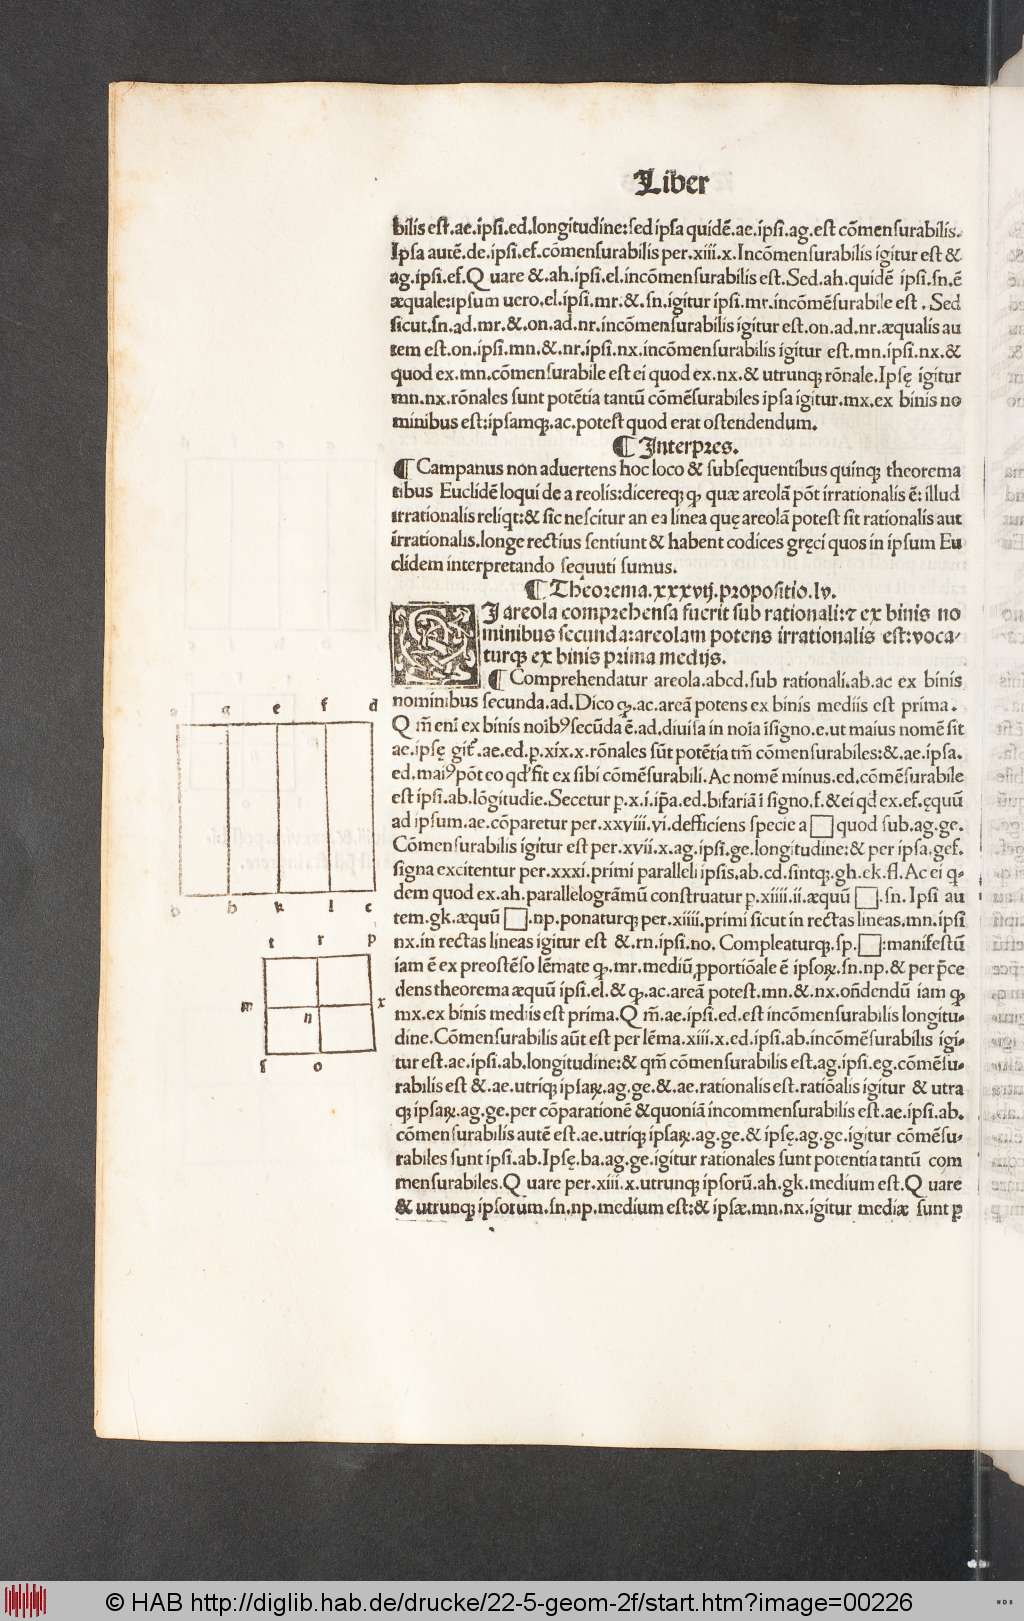 Liber
bilis est.ae.ipsi.ed.longitudine:sed ipsa quidē.ae.ipsi.ag.est cōmensurabilis.
Ipsa autē.de.ipsi.ef.cōmensurabilis per.xiii.x.Incōmensurabilis igitur est &
ag.ipsi.ef.Q uare &.ah.ipsi.el.incōmensurabilis est.Sed.ah.quidē ipsi.sn.ē
æquale:ipsum uero.el.ipsi.mr.&.sn.igitur ipsi.mr.incōmēsurabile est. Sed
sicut.sn.ad.mr.&.on.ad.nr.incōmensurabilis igitur est.on.ad.nr.æqualis au
tem est.on.ipsi.mn.&.nr.ipsi.nx.incōmensurabilis igitur est.mn.ipsi.nx.&
quod ex.mn.cōmensurabile est ei quod ex.nx.& utrunqꝫ rōnale.Ipsę igitur
mn.nx.rōnales sunt potētia tantū cōmēsurabiles ipsa igitur.mx.ex binis no
minibus est:ipsamqꝫ.ac.potest quod erat ostendendum.
¶ Interpres.
¶ Campanus non aduertens hoc loco & subsequentibus quinqꝫ theorema
tibus Euclidē loqui de areolis:dicereqꝫ ꝙ quæ areolā pōt irrationalis ē: illud
irrationalis reliqt:& sic nescitur an ea linea quę areolā potest sit rationalis aut
irrationalis.longe rectius sentiunt & habent codices gręci quos in ipsum Eu
clidem interpretando sequuti sumus.
¶ Theorema.xxxvij.propositio.lv.
SI areola comprehensa fuerit sub rationali:⁊ ex binis no
minibus secunda:areolam potens irrationalis est:voca⸗
turqꝫ ex binis prima medijs.
¶ Comprehendatur areola.abcd.sub rationali.ab.ac ex binis
nominibus secunda.ad.Dico ꝙ.ac.areā potens ex binis mediis est prima.
Q m̄ eni ex binis noībꝰ secūda ē.ad.diuisa in noīa ī signo.e.ut maius nomē sit
ae.ipsę gitͬ.ae.ed.p.xix.x.rōnales sūt potētia tm̄ cōmensurabiles:&.ae.ipsa.
ed.maiꝰ pōt eo qd' fit ex sibi cōmēsurabili.Ac nomē minus.ed.cōmēsurabile
est ipsi.ab.lōgitudie.Secetur p.x.i.ip̄a.ed.bifariā ī signo.f.& ei qd ex.ef.ęquū
ad ipsum.ae.cōparetur per.xxviii.vi.defficiens specie a □ quod sub.ag.ge.
Cōmensurabilis igitur est per.xvii.x.ag.ipsi.ge.longitudine:& per ipsa.gef.
signa excitentur per.xxxi.primi paralleli ipsis.ab.cd.sintqꝫ.gh.ek.fl.Ac ei q⸗
dem quod ex.ah.parallelogrāmū construatur p.xiiii.ii.æquū □.sn.Ipsi au
tem.gk.æquū □.np.ponaturqꝫ per.xiiii.primi sicut in rectas lineas.mn.ipsi
nx.in rectas lineas igitur est &.rn.ipsi.no. Compleaturqꝫ.sp.□:manifestū
iam ē ex preostēso lēmate ꝙ.mr.mediū proportiōale ē ipsoꝝ.sn.np.& per p̄ce
dens theorema æquū ipsi.el.& ꝙ.ac.areā potest.mn.&.nx.on̄dendū iam ꝙ
mx.ex binis mediis est prima.Q m̄.ae.ipsi.ed.est incōmensurabilis longitu⸗
dine.Cōmensurabilis aūt est per lēma.xiii.x.ed.ipsi.ab.incōmēsurabilis igi⸗
tur est.ae.ipsi.ab.longitudine:& qm̄ cōmensurabilis est.ag.ipsi.eg.cōmēsu⸗
rabilis est &.ae.utriqꝫ ipsaꝝ.ag.ge.&.ae.rationalis est.ratiōalis igitur & utra
qꝫ ipsaꝝ.ag.ge.per cōparationē & quoniā incommensurabilis est.ae.ipsi.ab.
cōmensurabilis autē est.ae.utriqꝫ ipsaꝝ.ag.ge.& ipsę.ag.ge.igitur cōmēsu⸗
rabiles sunt ipsi.ab.Ipsę.ba.ag.ge.igitur rationales sunt potentia tantū com
mensurabiles.Q uare per.xiii.x.utrunqꝫ ipsorū.ah.gk.medium est.Q uare
& utrunqꝫ ipsorum.sn.np.medium est:& ipsæ.mn.nx.igitur mediæ sunt p
a g e f d
b h k l c
t r p
m n x
s o
© HAB http://diglib.hab.de/drucke/22-5-geom-2f/start.htm?image=00226